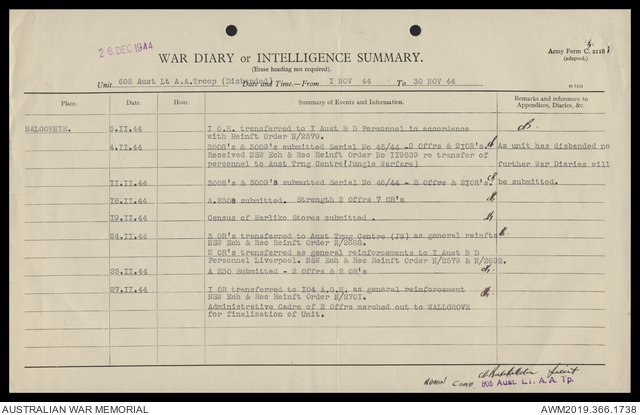 26 DEC 1944
Army Form C. 2118
(adapted.)
WAR DIARY or INTELLIGENCE SUMMARY.
(Erase heading not required).
Unit 605 Aust Lt A.A.Troop (Disbanded) Date and Time.—From I NOV 44 To 30 NOV 44
Place. Date. Hour. Summary of Events and Information. Remarks and references to
Appendices, Diaries, &c.
BALGOWNIE. 3.II.44 I O.R. transferred to I Aust B D Personnel in accordance
with Reinft Order N/2579.
4.II.44 3008's & 3009's submitted Serial No 45/44 -2 Offrs & 2IOR's. As unit has disbanded no
Received NSW Ech & Rec Reinft Order No II9539 re transfer of
personnel to Aust Trng Centre(Jungle Warfare) further War Diaries will
II.II.44 3008's & 3009's submitted Serial No 46/44 - 2 Offrs & 2IOR's. be submitted.
I8.II.44 A.2508 submitted. Strength 2 Offrs 7 OR's
I9.II.44 Census of Warlike Stores submitted .
24.II.44 3 OR's transferred to Aust Trng Centre (JW) as general reinfts
NSW Ech & Rec Reinft Order N/2688.
2 OR's transferred as general reinforcements to I Aust B D
Personnel Liverpool. NSW Ech & Rec Reinft Order N/2579 & N/2692.
25.II.44 A 230 Submitted - 2 Offrs & 2 OR's
27.II.44 I OR transferred to I04 A.G.H. as general reinforcement
NSW Ech & Rec Reinft Order N/270I.
Administrative Cadre of 2 Offrs marched out to WALLGROVE
for finalization of Unit.
Lieut
Admin Comd 605 Aust. Lt. A. A. Tp.
AUSTRALIAN WAR MEMORIAL AWM2019.366.1738